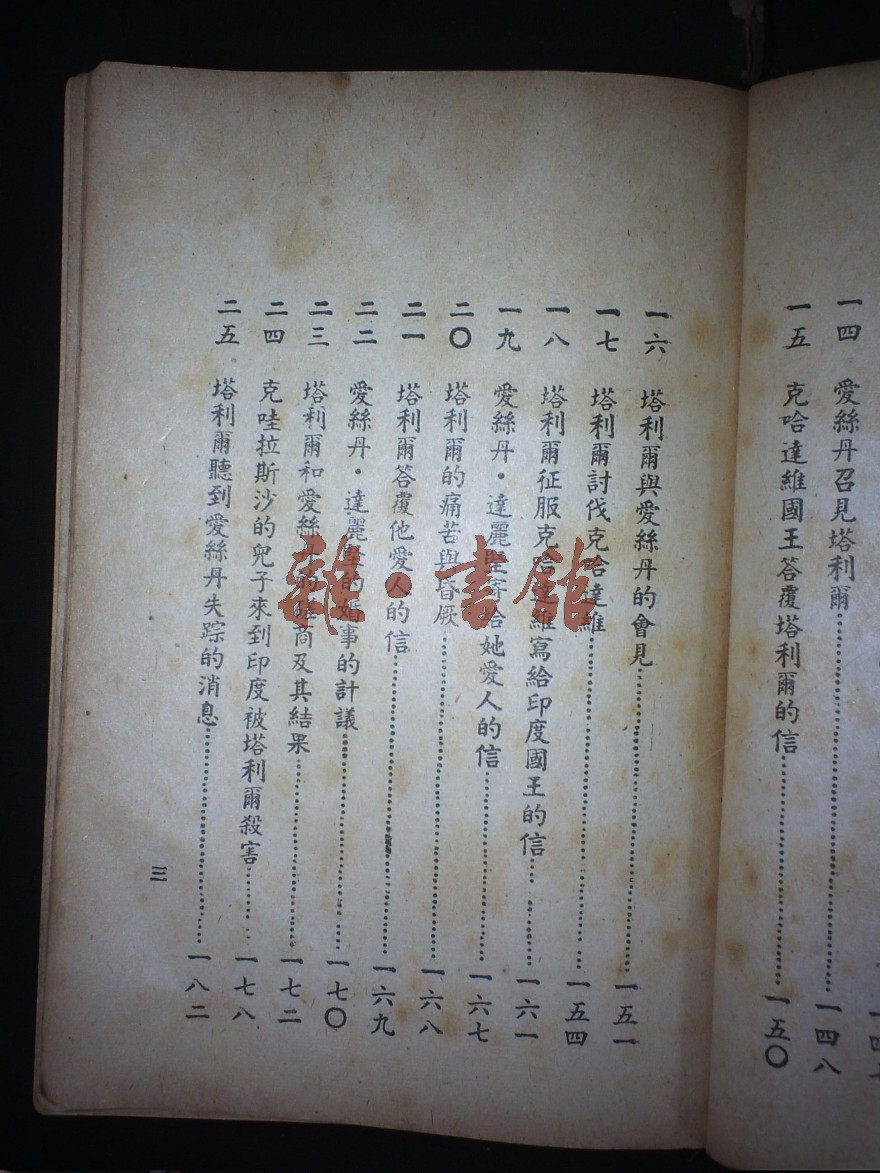 一四 愛絲丹召見塔利爾……一四八
一五 克哈達維國王答覆塔利爾的信……一五〇
一六 塔利爾與愛絲丹的會見……一五一
一七 塔利爾討伐克哈達維……一五四
一八 塔利爾征服克哈達維寫給印度國王的信……一六一
一九 愛絲丹·達麗堅寄給她愛人的信……一六七
二〇 塔利爾的痛苦與昏厥……一六八
二一 塔利爾答覆他愛人的信……一六九
二二 愛絲丹·達麗堅的婚事的計議……一七〇
二三 塔利爾和愛絲丹的磋商及其結果……一七二
二四 克哇拉斯沙的兒子來到印度被塔利爾殺害……一七八
二五 塔利爾聽到愛絲丹失踪的消息……一八二
三
雜·書館